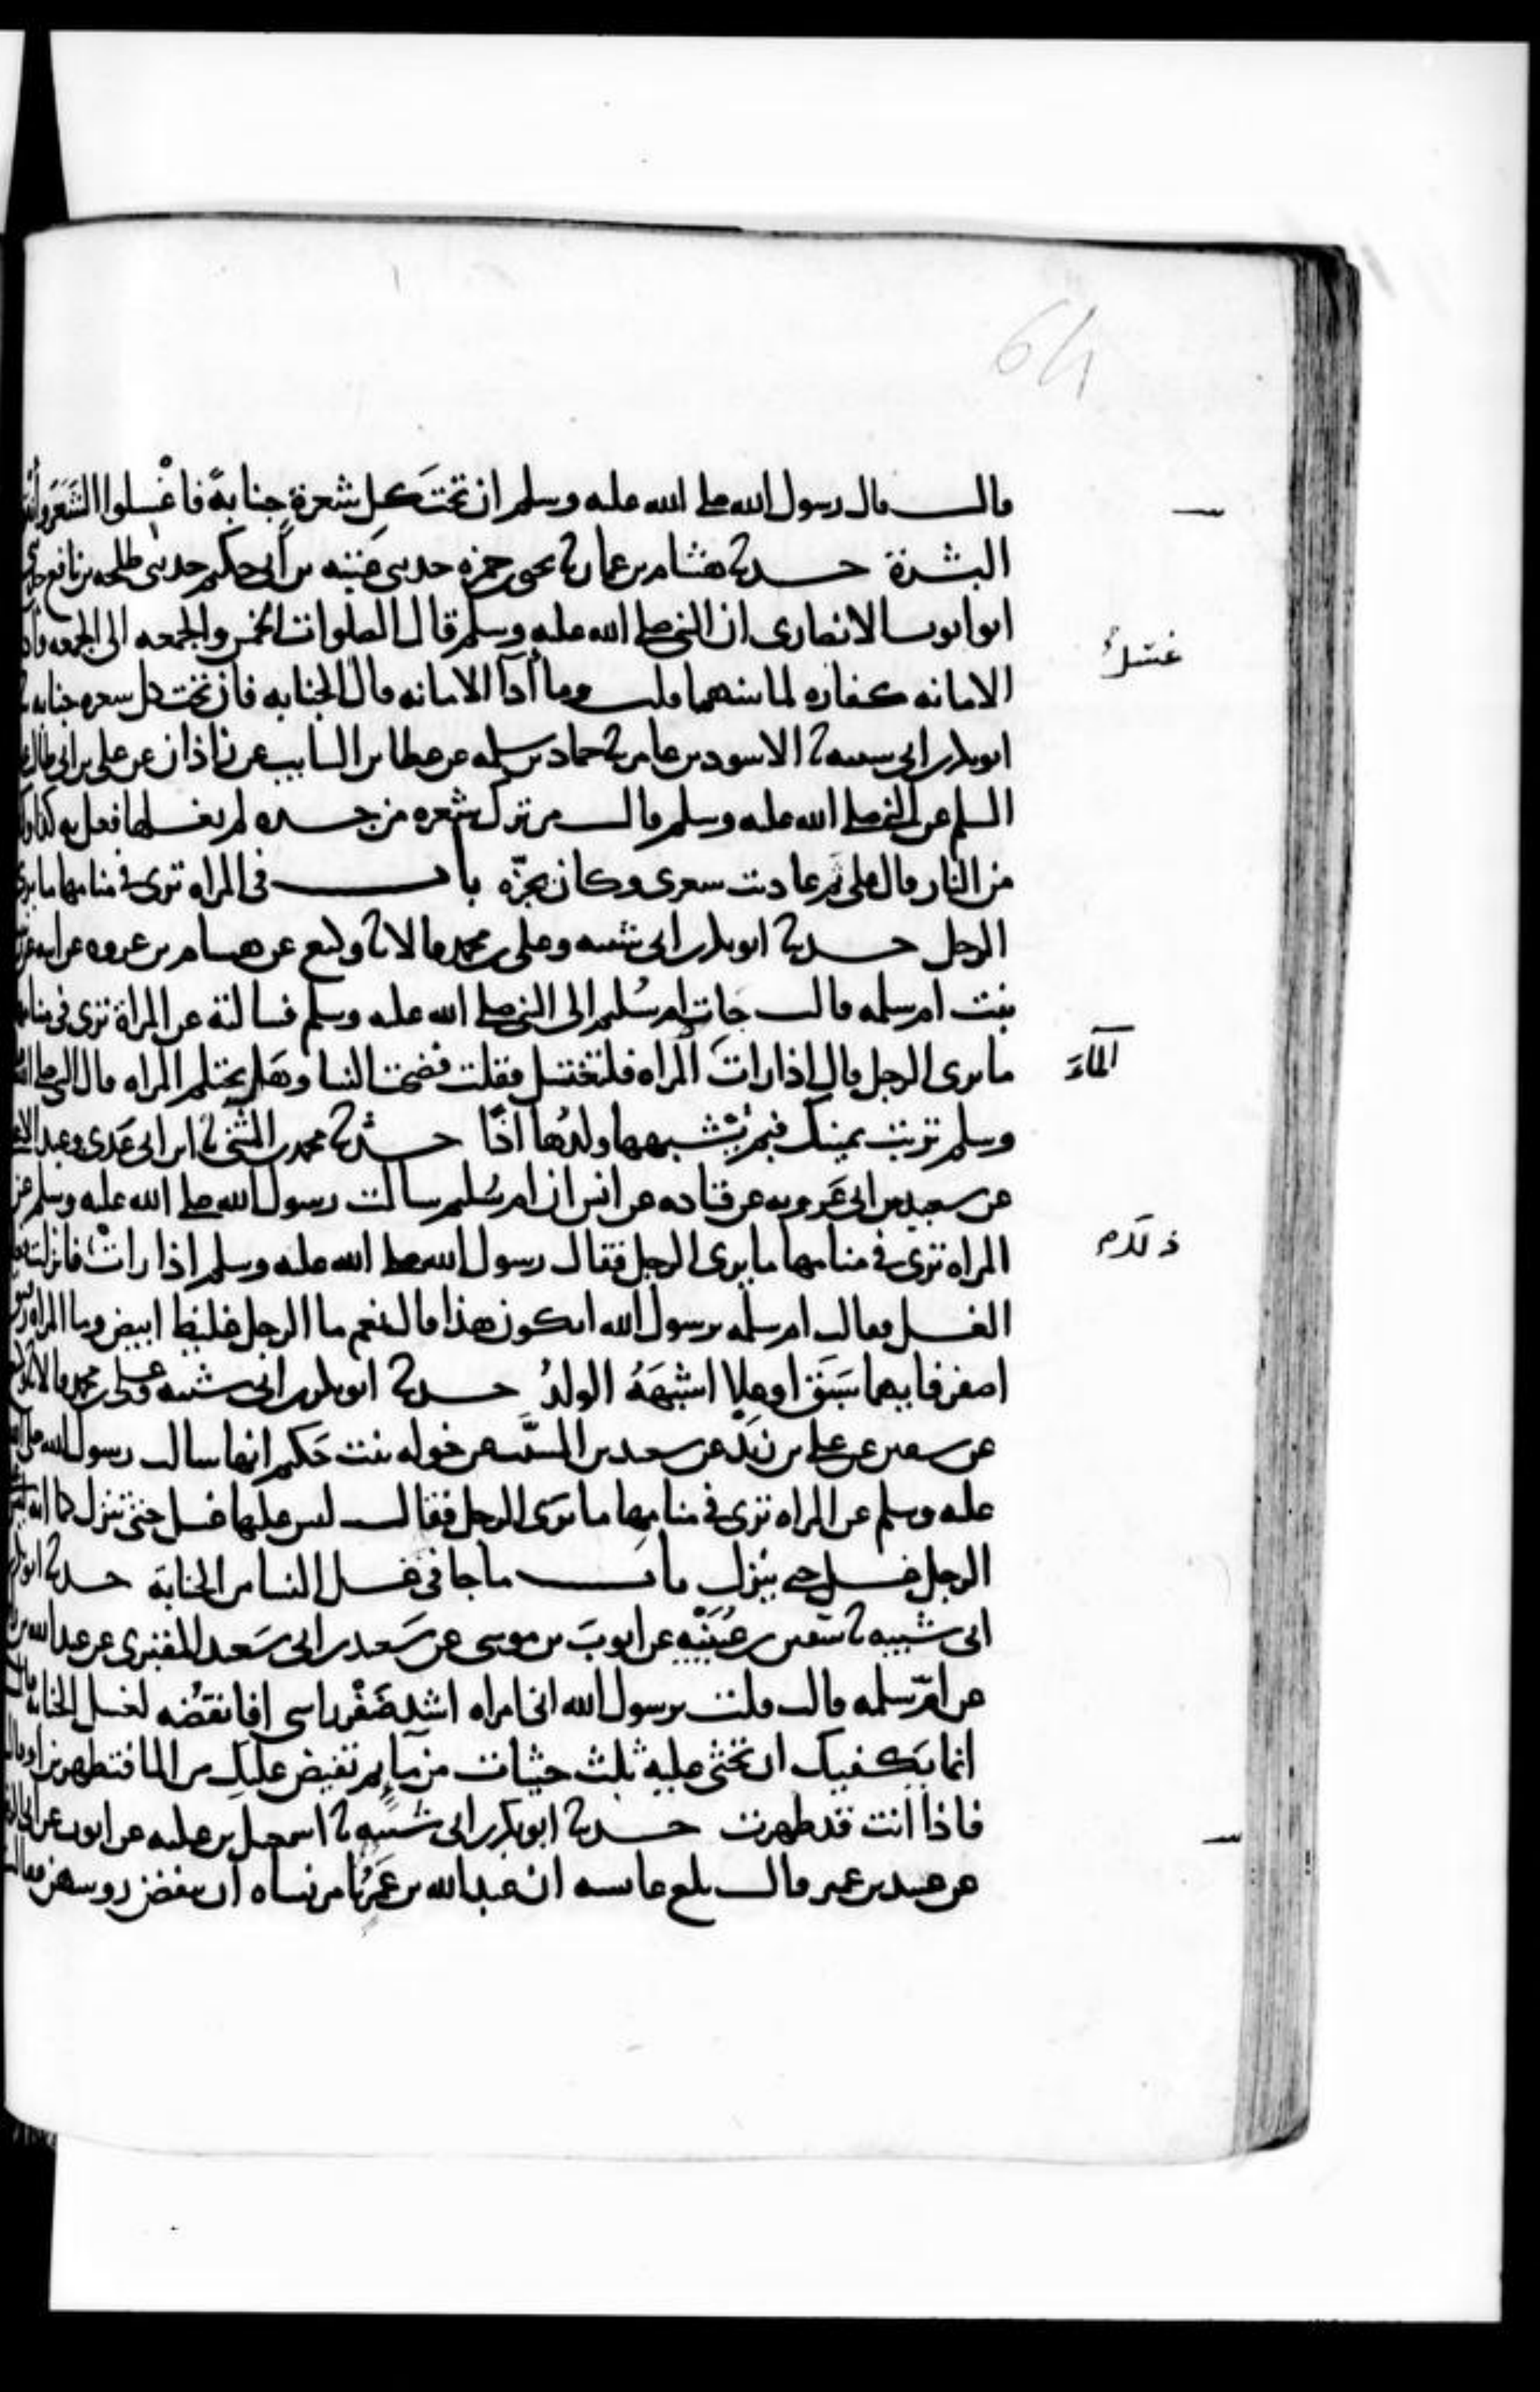 64
قال قال رسول الله صلى الله عليه وسلم ان تحتَ كل شعرةٍ جنابةً فاغْسِلوا الشَعَرَ وأنقوا
البشرة حدثنا هشام بن عمار نا يحيى بن حمزه حدثني عتبه بن أبي حكيم حدثني طلحه بن نافع حدثني
ابو ايوب الانصاري ان النبي صلى الله عليه وسلم قال الصلوات الخمس والجمعه الى الجمعه وأداء
الامانه كفاره لما بينهما قلت وما أدآ الامانه قال الجنابه فان تحت كل شعره جنابه
غسْلُ
ابو بكر بن ابي شيبه نا الاسود بن عامر نا حماد بن سلمه عن عطا بن السايب عن زاذان عن علي بن ابي طالب عليه
السلم عن النبي صلى الله عليه وسلم قال من ترك شعره من جسده لم يغسلها فعل به كذا وكذا
من النار قال علي ثم عاديت شعري وكان يجزّه باب في المراه ترى في منامها ما يرى
الرجل حدثنا ابو بكر بن ابي شيبه وعلي بن محمد قالا نا وكيع عن هشام بن عروه عن ابيه عن زينب
بنت ام سلمه قالت جات ام سُليم الى النبي صلى الله عليه وسلم فسالته عن المراة ترى في منامها
ما يرى الرجل قال اذا راتَ المراه فلتغتسل فقلت فضحت النسا وهَل تحتلم المراه قال النبي صلى الله عليه
المآءَ
وسلم تربت يمينك فبم يشبهها ولدُها اذًا حدثنا محمد بن المثنى نا ابن ابي عَدي وعبد الاعلى
عن سعيد بن ابي عَروبه عن قتاده عن انس ان ام سُليم سالت رسول الله صلى الله عليه وسلم عن
المراه ترى في منامها ما يرى الرجل فقال رسول الله صلى الله عليه وسلم اذا راتْ فانزلت فعليها
ذلك م
الغسل فقالت ام سلمه يرسول الله ايكون هذا قال نعم ما الرجل غليظ ابيض وما المراه رقيق
اصفر فايهما سَبَق او علا اشبَهَهُ الولدُ حدثنا ابو بكر بن ابي شيبه وعلي بن محمد قالا نا وكيع
عن سفين عن علي بن زَيْد عن سعيد بن المسيَّب عن خوله بنت حَكيم انها سالت رسول الله صلى الله
عليه وسلم عن المراه ترى في منامها ما يرى الرجل فقال ليس عليها غسل حتى تنزل كما انه ليس على
الرجل غسل حتى يُنزل باب ما جا في غسل النسا من الجنابة حدثنا ابو بكر بن
ابي شيبه نا سفين بن عُيَيْنه عن ايوبَ بن موسى عن سَعيد بن ابي سَعيد المقبري عن عبد الله بن رافع
عن امّ سلمه قالت قلت يرسول الله اني امراه اشد ضَفْر راسي افانقضُه لغسل الجنابه فقال
انما يَكفيكِ ان تحثي عليه ثلث حثيات من مآءٍ ثم تفيض عليكِ من الما فتطهرين او قال
فاذا انت قد طهرت حدثنا ابو بكر بن ابي شيبه نا اسمعيل بن عليه عن ايوب عن ابي الزبير
عن عبيد بن عمير قال بلغ عايشه ان عبد الله بن عَمرٍو يامر نساه ان ينقضن روسهن فقالت